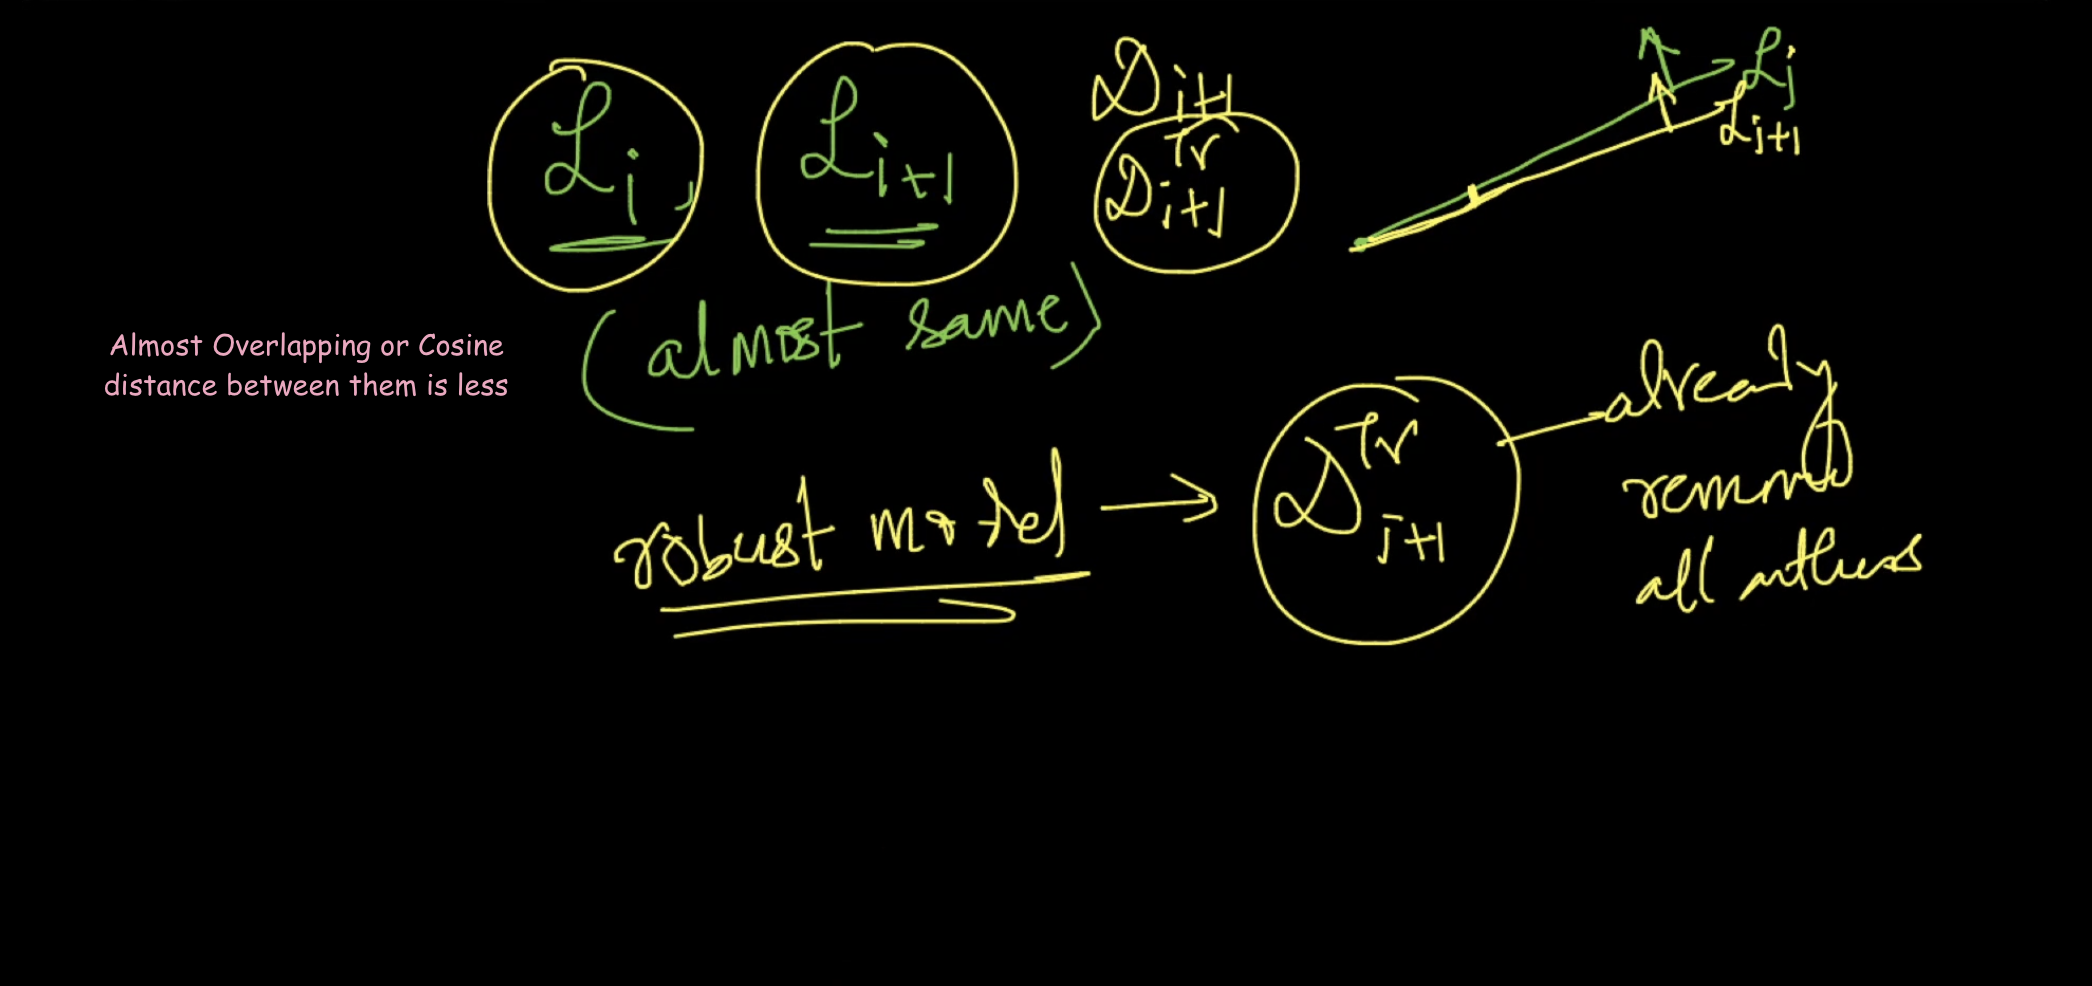 ℒi, ℒi+1 𝒟i+1
𝒟Tr i+1
ℒj
ℒj+1
(almost same)
Almost Overlapping or Cosine
distance between them is less
robust model → 𝒟Tr j+1
already
all